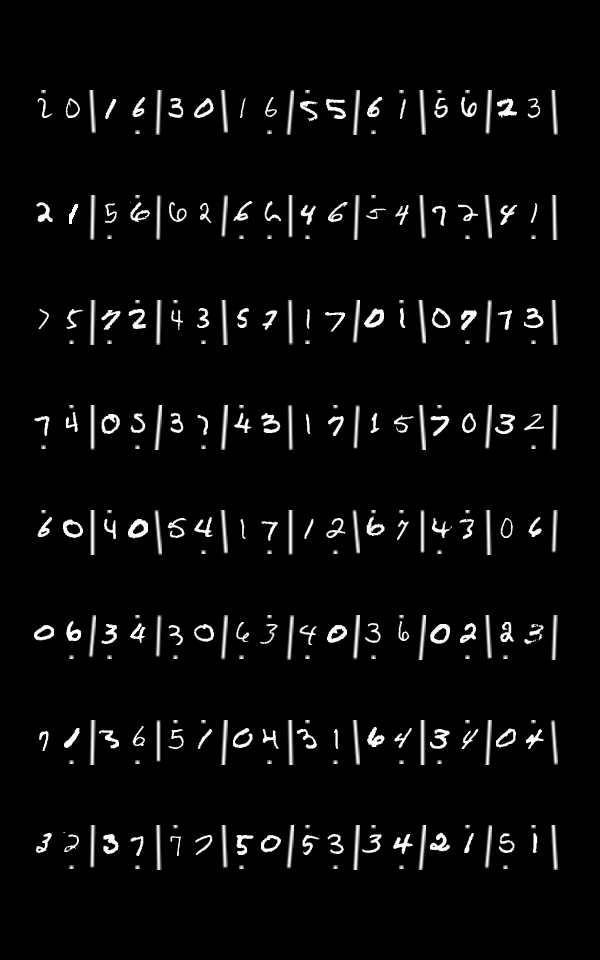 2 0 | 1 6 | 3 0 | 1 6 | 5 5 | 6 1 | 5 6 | 2 3 |
2 1 | 5 6 | 6 2 | 6 6 | 4 6 | 5 4 | 7 2 | 4 1 |
7 5 | 7 2 | 4 3 | 5 7 | 1 7 | 0 1 | 0 7 | 7 3 |
7 4 | 0 5 | 3 7 | 4 3 | 1 7 | 1 5 | 7 0 | 3 2 |
6 0 | 4 0 | 5 4 | 1 7 | 1 2 | 6 7 | 4 3 | 0 6 |
0 6 | 3 4 | 3 0 | 6 3 | 4 0 | 3 6 | 0 2 | 2 3 |
7 1 | 3 6 | 5 1 | 0 4 | 3 1 | 6 4 | 3 4 | 0 4 |
3 2 | 3 7 | 7 7 | 5 0 | 5 3 | 3 4 | 2 1 | 5 1 |